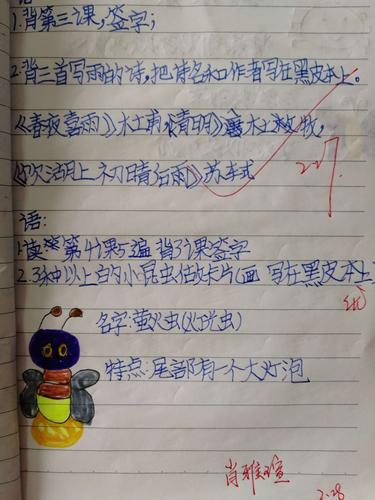 1.背第三课,签字;
2.背三首写雨的诗,把诗名和作者写在黑皮本上。
《春夜喜雨》杜甫,《清明》杜牧,
《饮湖上初晴后雨》苏轼
2-27.
语:
1.读第4课5遍 背3课签字
2.3种以上的小昆虫做卡片(画 写在黑皮本上)
名字:萤火虫(灯光虫)
特点:尾部有一个大灯泡
肖雅瑄
2.28